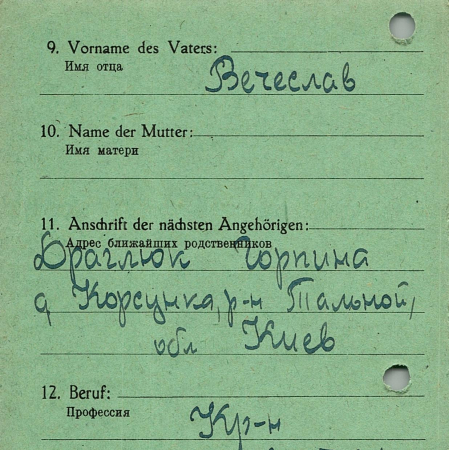 9. Vorname des Vaters:
Имя отца
Вечеслав
10. Name der Mutter:
Имя матери
11. Anschrift der nächsten Angehörigen:
Адрес ближайших родственников
Драглюк Горпина
д, Корсунка, р-н Тальной,
обл Киев
12. Beruf:
Профессия
Кр-н